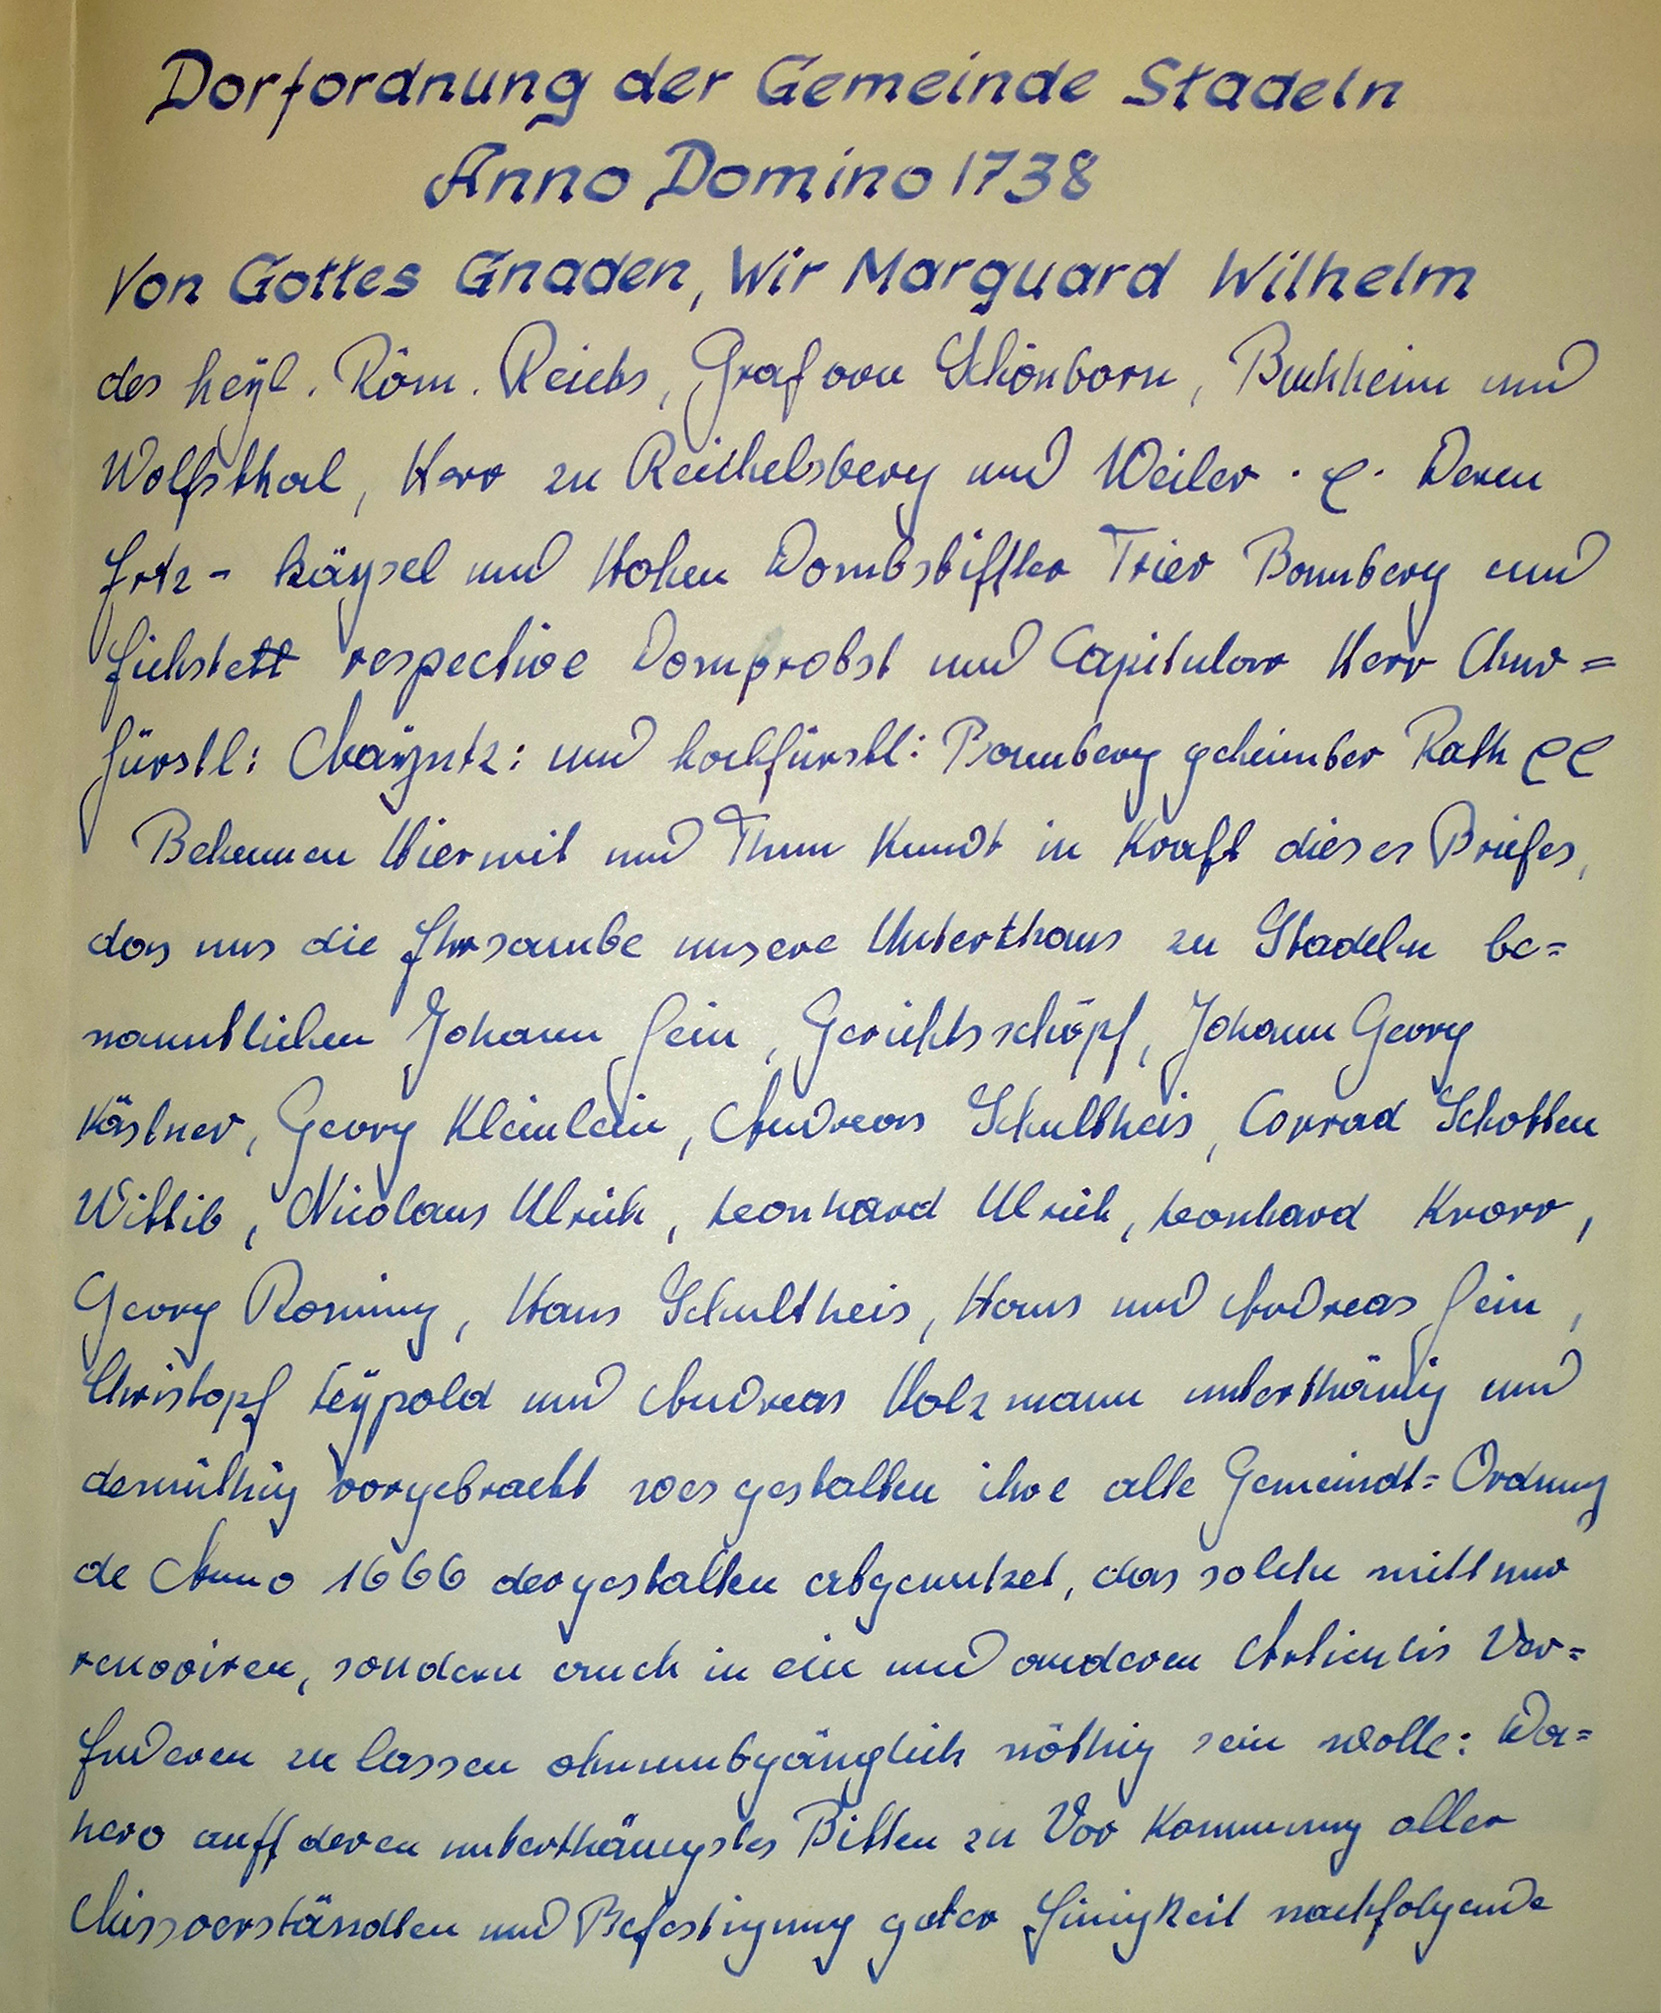 Dorfordnung der Gemeinde Stadeln
Anno Domino 1738
Von Gottes Gnaden, Wir Marguard Wilhelm
des heÿl. Röm. Reichs, Graf von Schönborn, Buchheim und
Wolfsthal, Herr zu Reichelsberg und Weiler. Deren
Ertz- Käyßel und Hohen Dombstiffter Trier Bamberg und
Eichstett respective Domprobst und Capitular Herr Chur=
fürstl: Maÿntz: und hochfürstl: Bamberg geheimber Rath
Bekennen Hiermit und Thun Kundt in Kraft dieses Briefes,
das uns die Ehrsambe unsere Unterthans zu Stadeln be=
nanntlichen Johann Fein, Gerichtsschöpf, Johann Georg
Kästner, Georg Kleinlein, Andreas Schultheis, Conrad Schotten
Wittib, Nicolaus Ulrich, Leonhard Ulrich, Leonhard Knorr,
Georg Roming, Hans Schultheis, Hans und Andreas Fein,
Christopf Leÿpold und Andreas Holzmann unterthänig und
demüthig vorgebracht wes gestalten ihre alte Gemeindt=Ordnung
de Anno 1666 dergestalten abgenutzet, das solche nitt nur
renoviren, sondern auch in ein und anderen Articulis Ver=
Enderen zu lassen ohnumbgänglich nöthig sein wolle: Da=
hero auff deren unterthänigstes Bitten zu Vor Kommung aller
Missverständten und Befestigung guter Einigkeit nachfolgende